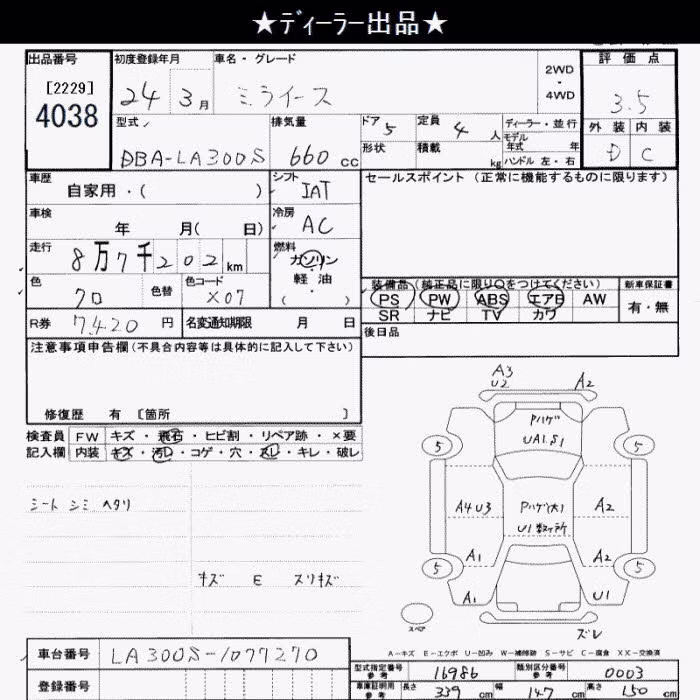 ★ディーラー出品★
出品番号
[2229]
4038
初度登録年月
24 3月
車名・グレード
ミライース
2WD
・
4WD
評価点
3.5
外装 内装
D C
型式
DBA-LA300S
排気量
660 cc
ドア 5
定員 4 人
形状
積載 kg
ディーラー・並行
モデル
年式 年
ハンドル 左・右
車歴
自家用・( )
シフト
IAT
セールスポイント (正常に機能するものに限ります)
車検
年 月( 日)
冷房
AC
走行
8万7千202km
燃料
ガソリン
軽油
( ・ )
色
クロ
色替
色コード
X07
装備品 (純正品に限り○をつけてください)
PS PW ABS エアB AW
SR ナビ TV カワ
新車保証書
有・無
R券 7420 円
名変通知期限 月 日
後日品
注意事項申告欄(不具合内容等は具体的に記入して下さい)
修復歴 有 〔箇所 〕
検査員
記入欄
FW キズ・飛石・ヒビ割・リペア跡・×要
内装 キズ・汚レ・コゲ・穴・スレ・キレ・破レ
シート シミ ヘタリ
キズ E スリキズ
A3
U2
A2
Pハゲ
UA1.S1
5 5
A4U3
Pハゲ(大)
U1数ヶ所
A2
A1 A2
5 5
A1 U1
スペア
ズレ
A-キズ E-エクボ U-凹み W-補修跡 S-サビ C-腐食 XX-交換済
車台番号
LA300S-1077270
登録番号
型式指定番号
参考
16986
類別区分番号
参考
0003
車庫証明用
参考
長さ 339 cm 幅 147 cm 高さ 150 cm